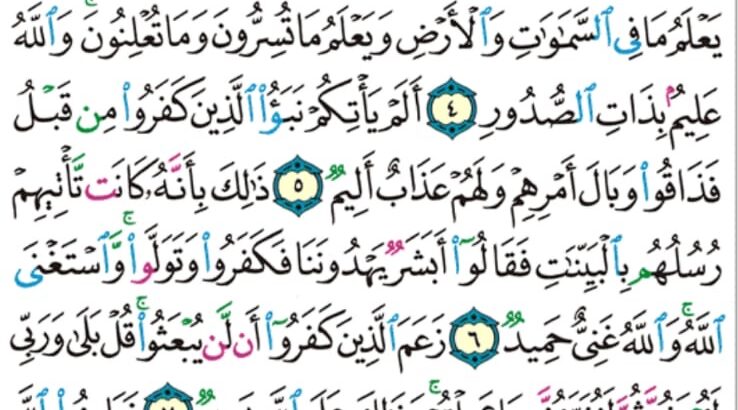 يَعْلَمُ مَا فِى ٱلسَّمَٰوَٰتِ وَٱلْأَرْضِ وَيَعْلَمُ مَا تُسِرُّونَ وَمَا تُعْلِنُونَ ۚ وَٱللَّهُ
عَلِيمٌۢ بِذَاتِ ٱلصُّدُورِ ٤ أَلَمْ يَأْتِكُمْ نَبَؤُا۟ ٱلَّذِينَ كَفَرُوا۟ مِن قَبْلُ
فَذَاقُوا۟ وَبَالَ أَمْرِهِمْ وَلَهُمْ عَذَابٌ أَلِيمٌ ٥ ذَٰلِكَ بِأَنَّهُۥ كَانَت تَّأْتِيهِمْ
رُسُلُهُم بِٱلْبَيِّنَٰتِ فَقَالُوٓا۟ أَبَشَرٌ يَهْدُونَنَا فَكَفَرُوا۟ وَتَوَلَّوا۟ ۚ وَّٱسْتَغْنَى
ٱللَّهُ ۚ وَٱللَّهُ غَنِىٌّ حَمِيدٌ ٦ زَعَمَ ٱلَّذِينَ كَفَرُوٓا۟ أَن لَّن يُبْعَثُوا۟ ۚ قُلْ بَلَىٰ وَرَبِّى